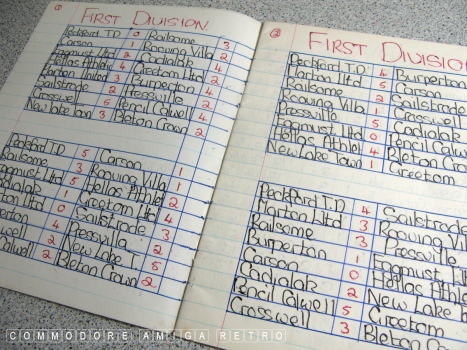 FIRST DIVISION.
Peckford T.D 0 Railsome 3
Carson 1 Roowing Villa 2
Eggmust Utd 2 Cadialak 4
Hellas Athle 4 Creetom Utd 4
Marton Utd 3 Burperton 4
Sailstrade 2 Pressville 2
Crosswell 5 Pencil Calwell 4
New Lake Town 3 Bleton Crown 2
Peckford T.D 5 Carson 1
Railsome 3 Roowing Villa 1
Eggmust Utd 5 Hellas Athle 1
1 Creetom Utd 4
0 Sailstrade 3
4 Pressvilla 2
2 New Lake T 5
Calwell 2 Bleton Crown 2
2
FIRST DIVISION
Peckford T.D 4 Burperton
Marton Utd 5 Carson
Railsome 2 Sailstrade
Roowing Villa 1 Crosswell
Pressville 5 Cadialak
Eggmust Utd 0 Pencil Calwell
Hellas Athle 4 Bleton Crow
New Lake Town 1 Creetom
Peckford T.D 4 Sailstrade
Marton Utd 3 Roowing Vi
Railsome 3 Pressvill
Burperton 1 Eggmust Ut
Carson 0 Hellas Ath
Cadialak 2 New Lake
Pencil Calwell 5 Creetom
Crosswell 3 Bleton Co
COMMODORE AMIGA RETRO